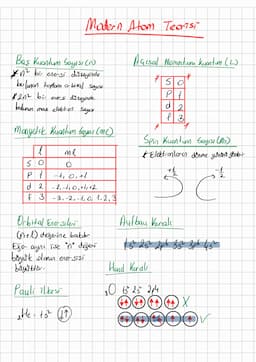 Modern Atom Teorisi
Baş Kuantum Sayısı (n)
* n² bir enerji düzeyinde
bulunan toplam orbital sayısı
* 2n² bir enerji düzeyinde
bulunan max elektron sayısı
Açısal Momentum Kuantum (L)
S 0
P 1
d 2
f 3
Manyetik Kuantum Sayısı (mL)
l mL
S 0 0
P 1 -1, 0, +1
d 2 -2, -1, 0, +1, +2
f 3 -3, -2, -1, 0, 1, 2, 3
Spin Kuantum Sayısı (ms)
* Elektronların dönme yönünü gösterir
+1/2 -1/2
Orbital Enerjileri
(n+l) değerine bakılır
Eğer aynı ise "n" değeri
büyük olanın enerjisi
büyüktür.
Aufbau Kuralı
1s² 2s² 2p⁶ 3s² 3p⁶ 4s²
Hund Kuralı
O 1s² 2s² 2p⁴
X
Pauli İlkesi
₂He - 1s²